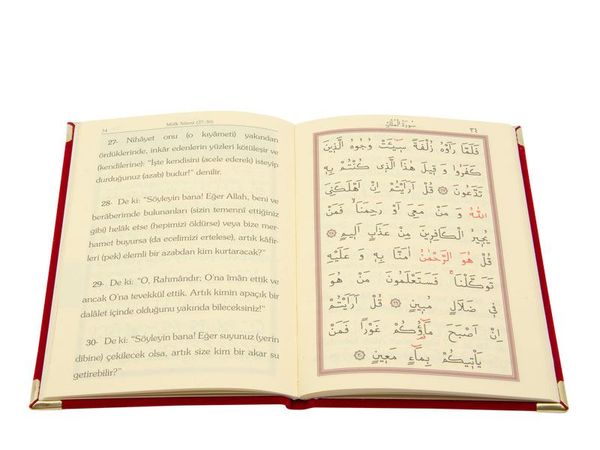 34
Mülk Sûresi (27-30)
27- Nihâyet onu (o kıyâmeti) yakından
ördüklerinde, inkâr edenlerin yüzleri kötüleşir ve
(kendilerine): "İşte kendisini (acele ederek) isteyip
durduğunuz (azab) budur!" denilir.
28- De ki: "Söyleyin bana! Eğer Allah, beni ve
berâberimde bulunanları (sizin temennî ettiğiniz
gibi) helâk etse (hepimizi öldürse) veya bize mer-
hamet buyursa (da ecelimizi ertelese), artık kâfir-
leri (pek) elemli bir azabdan kim kurtaracak?"
29- De ki: "O, Rahmândır; O'na îman ettik ve
ancak O'na tevekkül ettik. Artık kimin apaçık bir
dalâlet içinde olduğunu yakında bileceksiniz!"
30- De ki: "Söyleyin bana! Eğer suyunuz (yerin
dibine) çekilecek olsa, artık size kim bir akar su
getirebilir?"
سُورَةُ الْمُلْكِ
٣٤
فَلَمَّا رَاَوْهُ زُلْفَةً سٖٓيـَٔتْ وُجُوهُ الَّذٖينَ
كَفَرُوا وَ قٖيلَ هٰذَا الَّذٖى كُنْتُمْ بِهٖ
تَدَّعُونَ ۞ قُلْ اَرَاَيْتُمْ اِنْ اَهْلَكَنِىَ
اللّٰهُ وَ مَنْ مَعِىَ اَوْ رَحِمَنَا ۙ فَمَنْ
يُجٖيرُ الْكَافِرٖينَ مِنْ عَذَابٍ اَلٖيمٍ ۞
قُلْ هُوَ الرَّحْمٰنُ اٰمَنَّا بِهٖ وَ عَلَيْهِ
تَوَكَّلْنَا ۚ فَسَتَعْلَمُونَ مَنْ هُوَ
فٖى ضَلَالٍ مُبٖينٍ ۞ قُلْ اَرَاَيْتُمْ
اِنْ اَصْبَحَ مَٓاؤُ۬كُمْ غَوْرًا فَمَنْ
يَاْتٖيكُمْ بِمَٓاءٍ مَعٖينٍ ۞